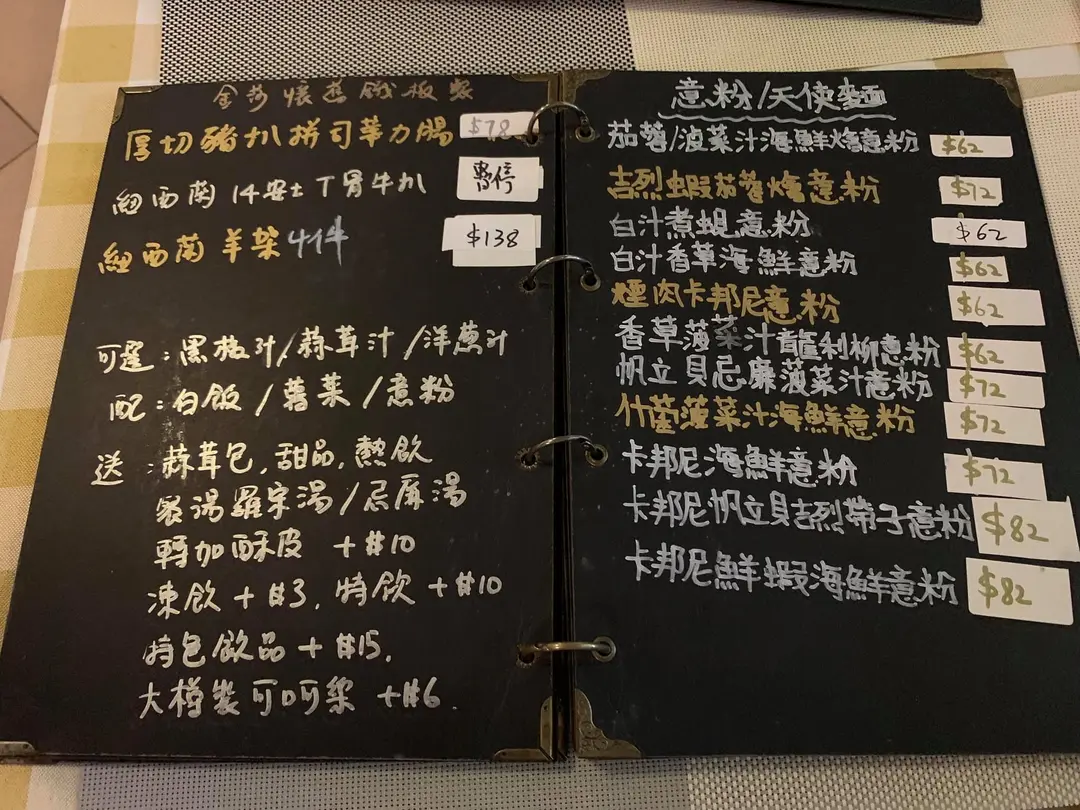 金莎懷舊鐵板餐
厚切豬扒拼司華力腸 $78
紐西蘭14安士T骨牛扒 暫停
紐西蘭羊架4件 $138
可選:黑椒汁/蒜茸汁/洋蔥汁
配:白飯/薯菜/意粉
送:蒜茸包,甜品,熱飲
餐湯羅宋湯/忌廉湯
轉加酥皮 +#10
凍飲+#3,特飲+#10
特色飲品+#15,
大樽裝可口可樂 +#6.
意粉/天使麵
茄蓉/菠菜汁海鮮焗意粉 $62
吉烈蝦茄蓉焗意粉 $72
白汁煮蜆意粉 $62
白汁香草海鮮意粉 $62
煙肉卡邦尼意粉 $62
香草菠菜汁龍利柳意粉 $62
帆立貝忌廉菠菜汁意粉 $72
什菌菠菜汁海鮮意粉 $72
卡邦尼海鮮意粉 $72
卡邦尼帆立貝吉烈帶子意粉 $82
卡邦尼鮮蝦海鮮意粉 $82